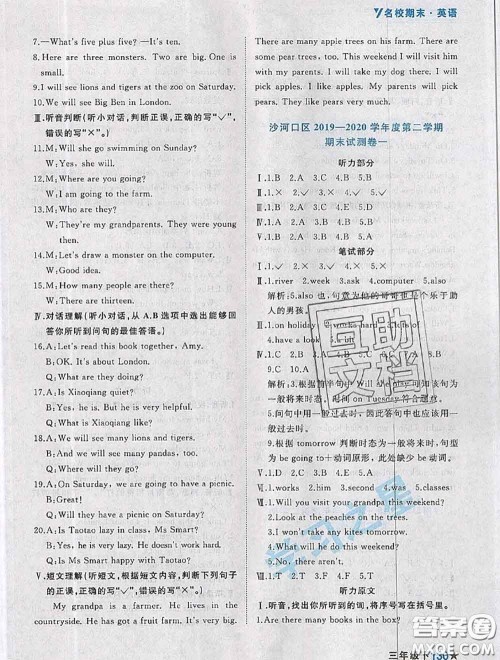 名校期末·英语
7.—What's five plus five? —It's ten.
8. Here are three monsters. Two are big. One is
small.
9. I will see lions and tigers at the zoo on Saturday.
10. We will see Big Ben in London.
Ⅲ.听音判断(听小对话,判断正误,正确的写"✓",
错误的写"×"。)
11. M: Will she go swimming on Sunday?
W: Yes, she will.
12. M: Where are you going?
W: I am going to the farm.
13. M: Who are they?
W: They're my grandparents. They were young
then.
14. M: Let's draw a monster on the computer.
W: Good idea!
15. M: How old are you?
W: I'm thirteen years old.
Ⅳ.对话理解(听小对话,从 A、B 选项中选出能够回
答你所听到问句的最佳答语。)
16. A: Let's read this book together, Amy.
B: OK. It's about London.
Q: What are they doing?
17. A: Is Xiaoqiang quiet?
B: Yes, he is. But he is very helpful.
Q: Is Xiaoqiang naughty?
18. A: We will see many lions and tigers.
B: And we will see many pandas, too.
Q: Where will they go?
19. A: Will you have a picnic on Saturday?
B: Great!
Q: Will they have a picnic on Saturday?
20. A: Is Taotao lazy in class, Ms Smart?
B: He is very lazy. He doesn't work hard.
Q: Is Ms Smart happy with Taotao?
Ⅴ.短文理解(听短文,根据短文内容,判断下列句子
的正误,正确的写"✓",错误的写"×"。)
My grandpa is a farmer. He lives in the
countryside. He has got a fruit farm. It's very big.
There are many apple trees on his farm. There are
some pear trees, too. This weekend I will visit him
with my parents. I will take my dog there. I will
pick apples. My parents will pick pears. We will
have lots of fun.
沙河口区 2019—2020 学年度第二学期
期末试测卷一
听力部分
Ⅰ.1.B 2.A 3.C 4.B 5.A
Ⅱ.1.× 2.✓ 3.✓ 4.× 5.×
Ⅲ.1.D 2.C 3.A 4.E 5.D
Ⅳ.1.B 2.A 3.B 4.A 5.B
笔试部分
Ⅱ.1. river 2. week 3. ask 4. computer 5. also
解析:5. also 也,句意为他的哥哥也是个乐于助
人的男孩。
Ⅲ.1. on holiday 2. works hard
4. have a look
解析:2.根据前半句 Will she play 可知该句为
一般将来时,时间 on Tuesday 符合题意。
5.问句中用一般过去时,因此答句中也应该用
一般过去时。
9.根据 tomorrow 判断时态为一般将来时,句型
为 be going to+动词原形,此处缺少 be 动词。
Ⅴ.1.D 2.C 3.B 4.A
Ⅵ.1. works 2. some 3. was 4. classes
1. Will you visit your grandpa this weekend?
2. I will see lions and tigers.
3. Will you visit your grandpa this weekend?
4. What will you do this weekend?
5. I am going to read this book.
听力原文
Ⅰ.听音,找出你所听到的词,将序号写在括号里。
1. Are there many books in the box?
互助文档
学习之星
三年级下
答案圈
MXQE.COM